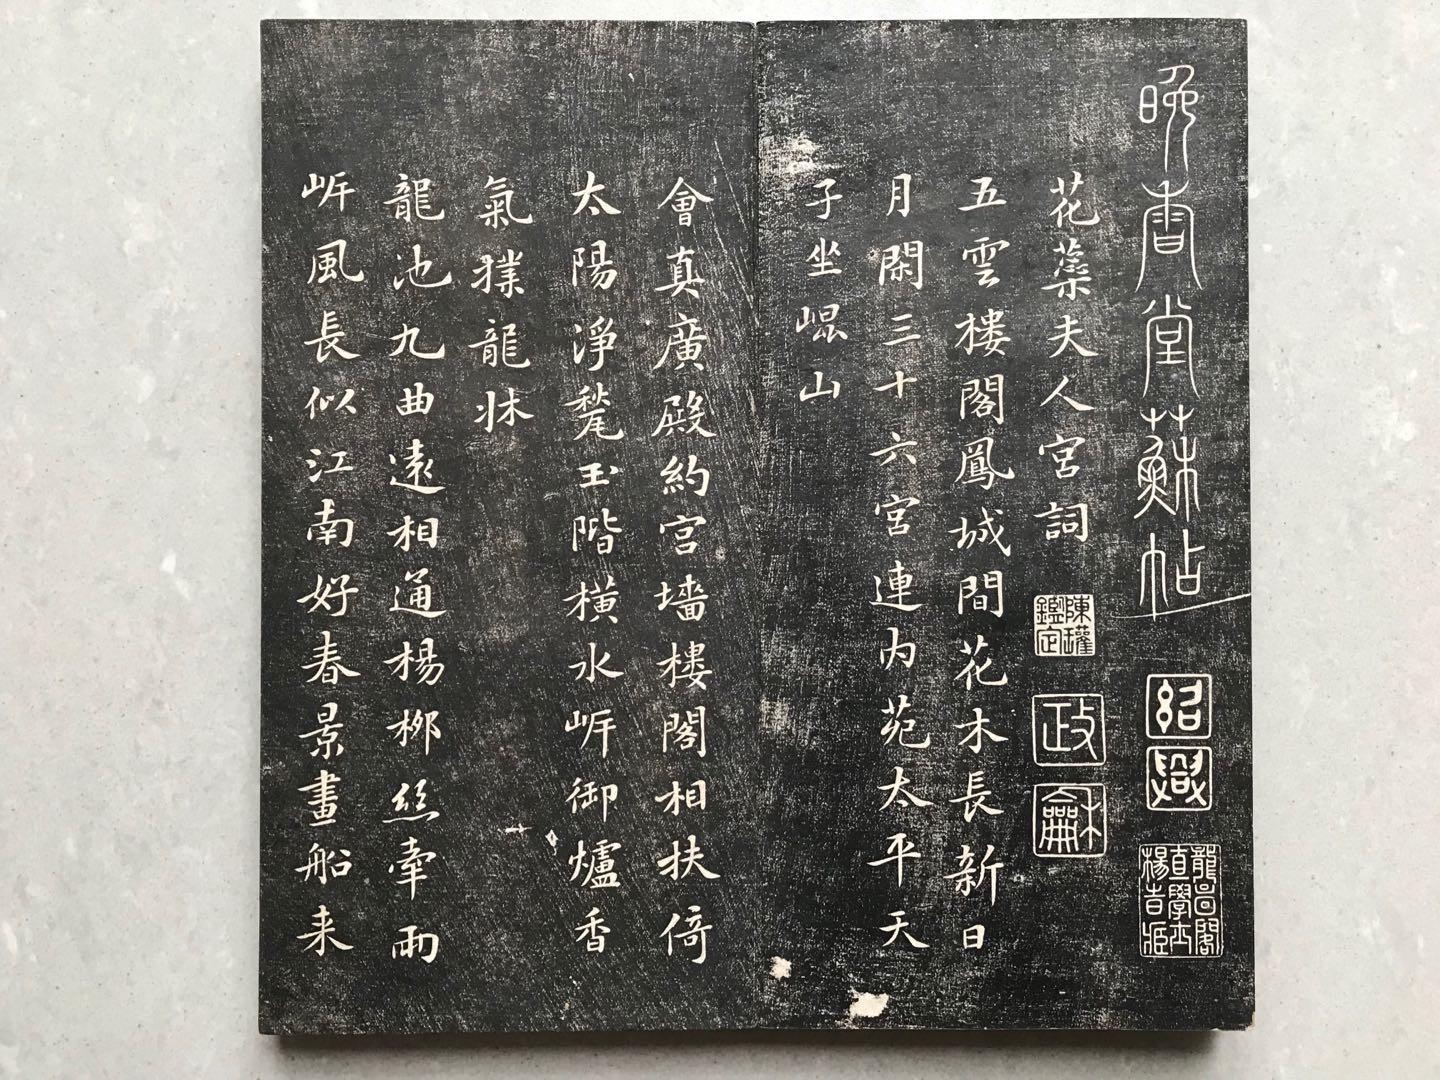 晚香堂蘇帖
紹興
龍啚閣直學士楊
花蘂夫人宮詞
陳瓘鑑定
政龢
五雲樓閣鳳城間花木長新日
月閑三十六宮連内苑太平天
子坐崐山
會真廣殿約宮墻樓閣相扶倚
太陽淨甃玉階橫水岸御爐香
氣撲龍牀
龍池九曲遠相通楊栁絲牽兩
岸風長似江南好春景畫船来